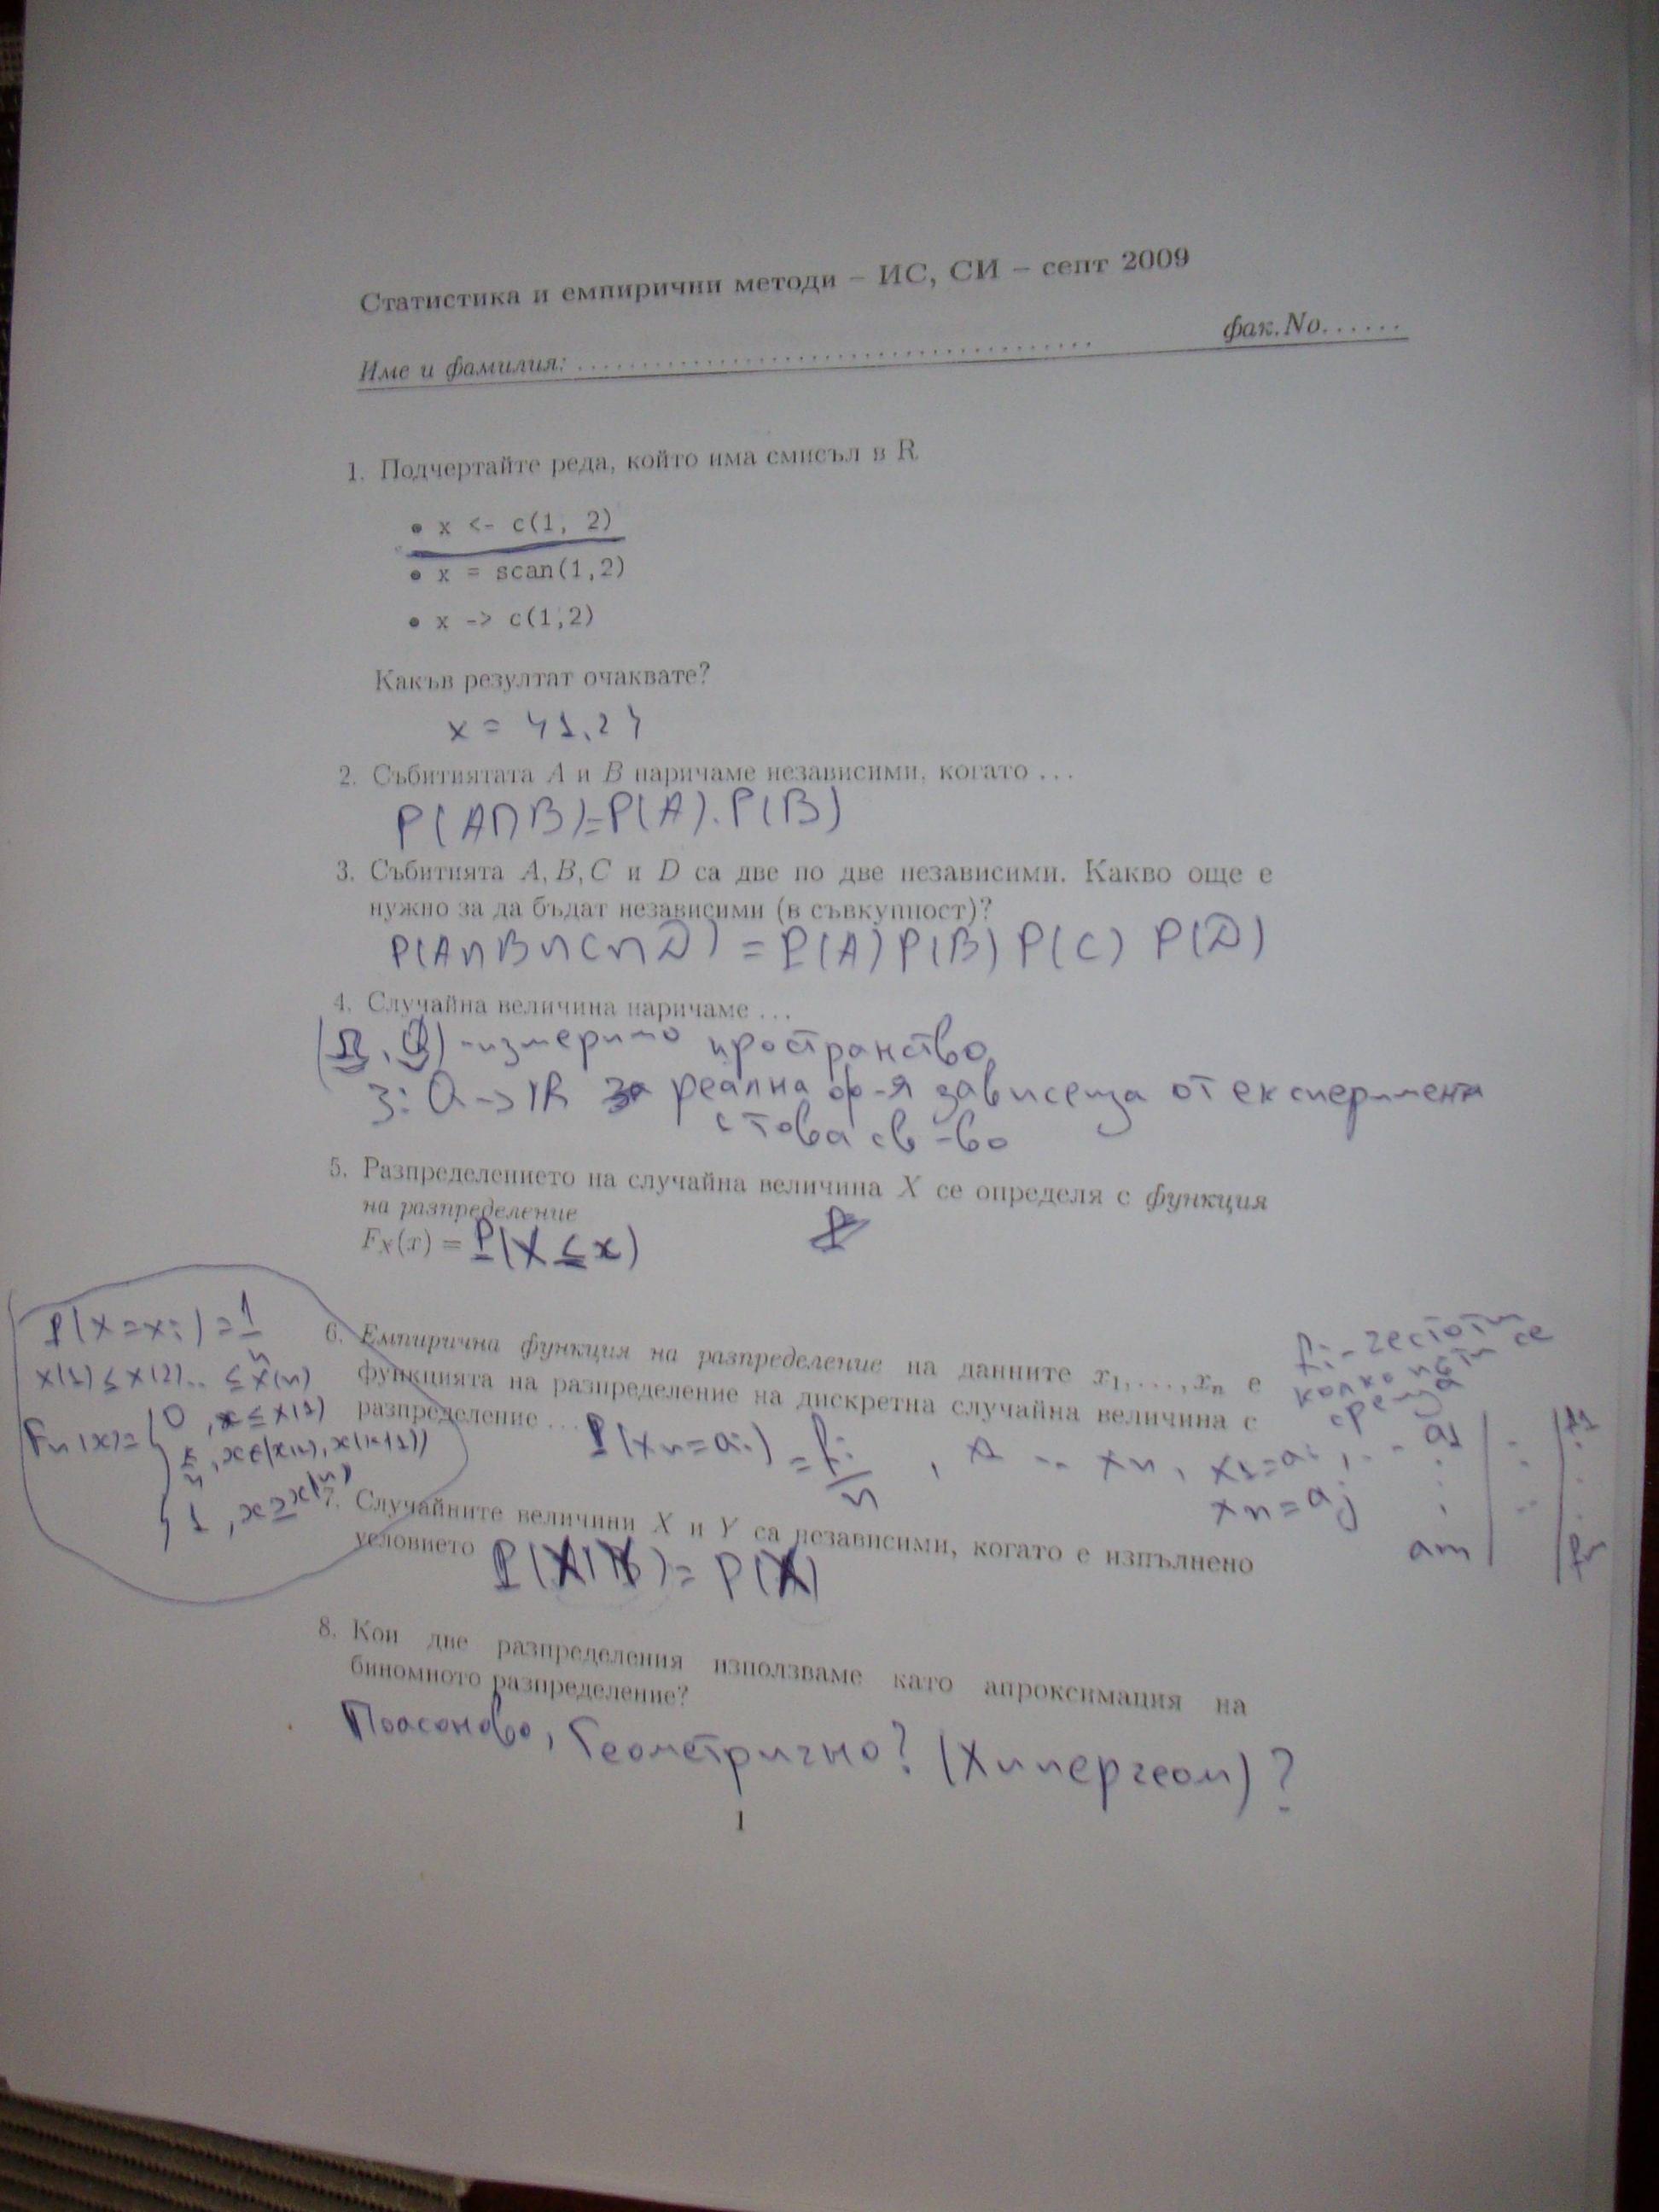 Статистика и емпирични методи – ИС, СИ – септ 2009
Име и фамилия: ........................................ фак.No......
1. Подчертайте реда, който има смисъл в R
• x <- c(1, 2)
• x = scan(1,2)
• x -> c(1,2)
Какъв резултат очаквате?
x = {1,2}
2. Събитиятата A и B наричаме независими, когато ...
P(A∩B)=P(A).P(B)
3. Събитията A, B, C и D са две по две независими. Какво още е
нужно за да бъдат независими (в съвкупност)?
P(A∩B∩C∩D) = P(A) P(B) P(C) P(D)
4. Случайна величина наричаме ...
-измеримо пространство
реална ф-я зависеща от експеримента
с това св-во
5. Разпределението на случайна величина X се определя с функция
на разпределение
F_X(x) = P(X ≤ x)
P(X=xi)=1/n
x(1)≤x(2).. ≤x(n)
Fn(x)= { 0 , x≤x(1)
k/n , x∈(x(k), x(k+1))
1 , x≥x(n)
6. Емпирична функция на разпределение на данните x₁, ..., xₙ е
функцията на разпределение на дискретна случайна величина с
разпределение ... P(xn=ai) = fi/n
fi - честоти
колко пъти се
среща
xn = aj
am
7. Случайните величини X и Y са независими, когато е изпълнено
условието
8. Кои две разпределения използваме като апроксимация на
биномното разпределение?
Поасоново, Геометрично? (Хипергеом)?
1